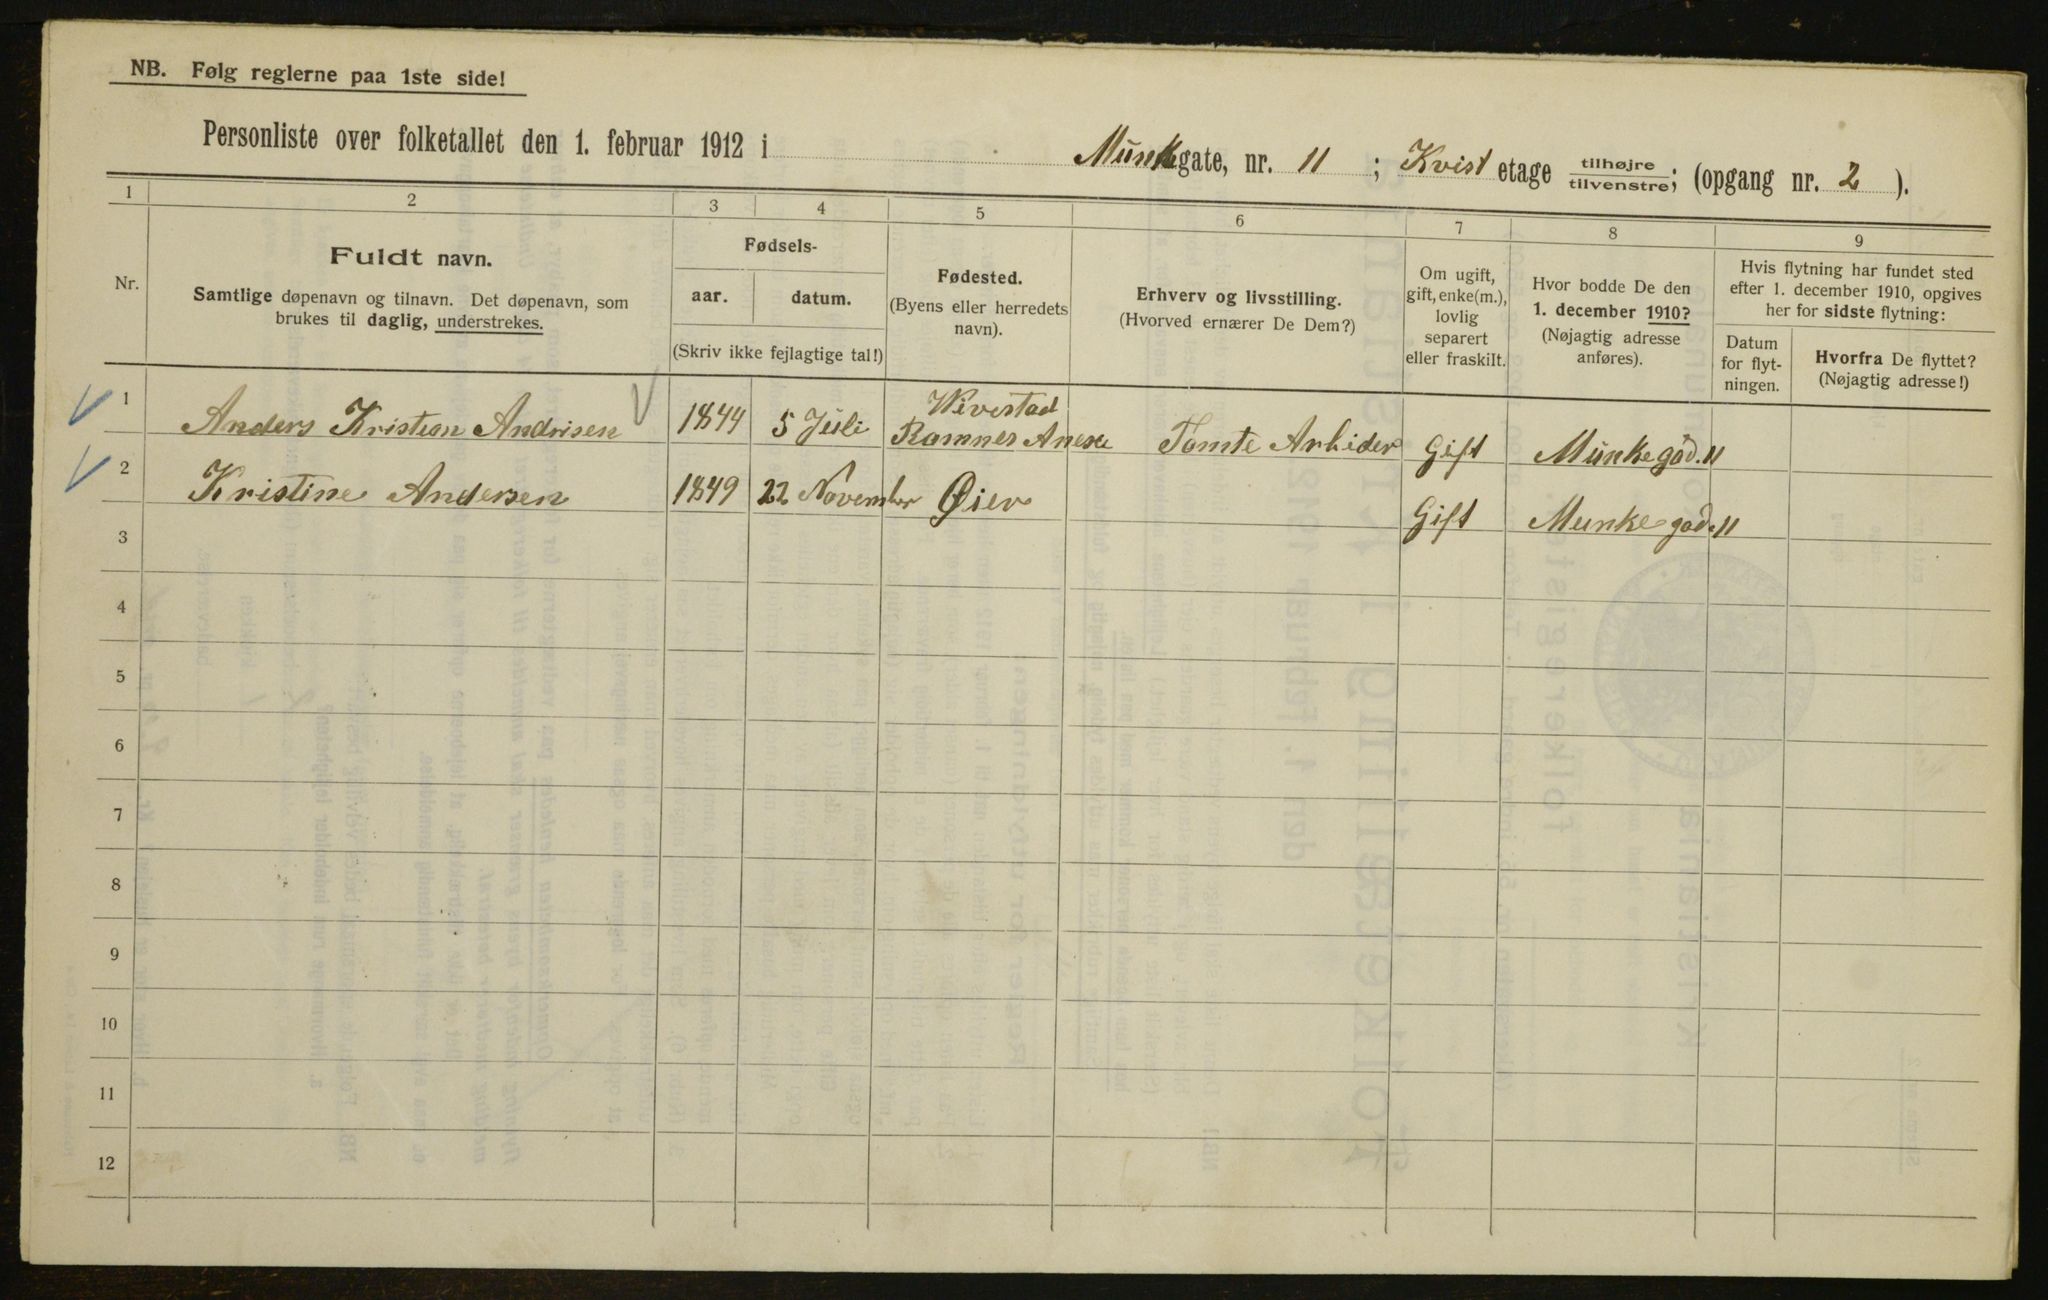 NB. Følg reglerne paa 1ste side!
Personliste over folketallet den 1. februar 1912 i Munkegate, nr. 11 ; Kvist etage tilhøjre / tilvenstre; (opgang nr. 2 ).
1 2 3 4 5 6 7 8 9
Nr.
Fuldt navn.
Samtlige døpenavn og tilnavn. Det døpenavn, som
brukes til daglig, understrekes.
Fødsels-
aar. datum.
(Skriv ikke fejlagtige tal!)
Fødested.
(Byens eller herredets
navn).
Erhverv og livsstilling.
(Hvorved ernærer De Dem?)
Om ugift,
gift, enke(m.),
lovlig
separert
eller fraskilt.
Hvor bodde De den
1. december 1910?
(Nøjagtig adresse
anføres).
Hvis flytning har fundet sted
efter 1. december 1910, opgives
her for sidste flytning:
Datum
for flyt-
ningen.
Hvorfra De flyttet?
(Nøjagtig adresse!)
1 Anders Kristian Andrisen 1844 5 Juli Wivestad
Ramnes Anexe Tomte Arbider Gift Munkegad. 11
2 Kristine Andersen 1849 22 November Øier Gift Munkegad. 11
3
4
5
6
7
8
9
10
11
12